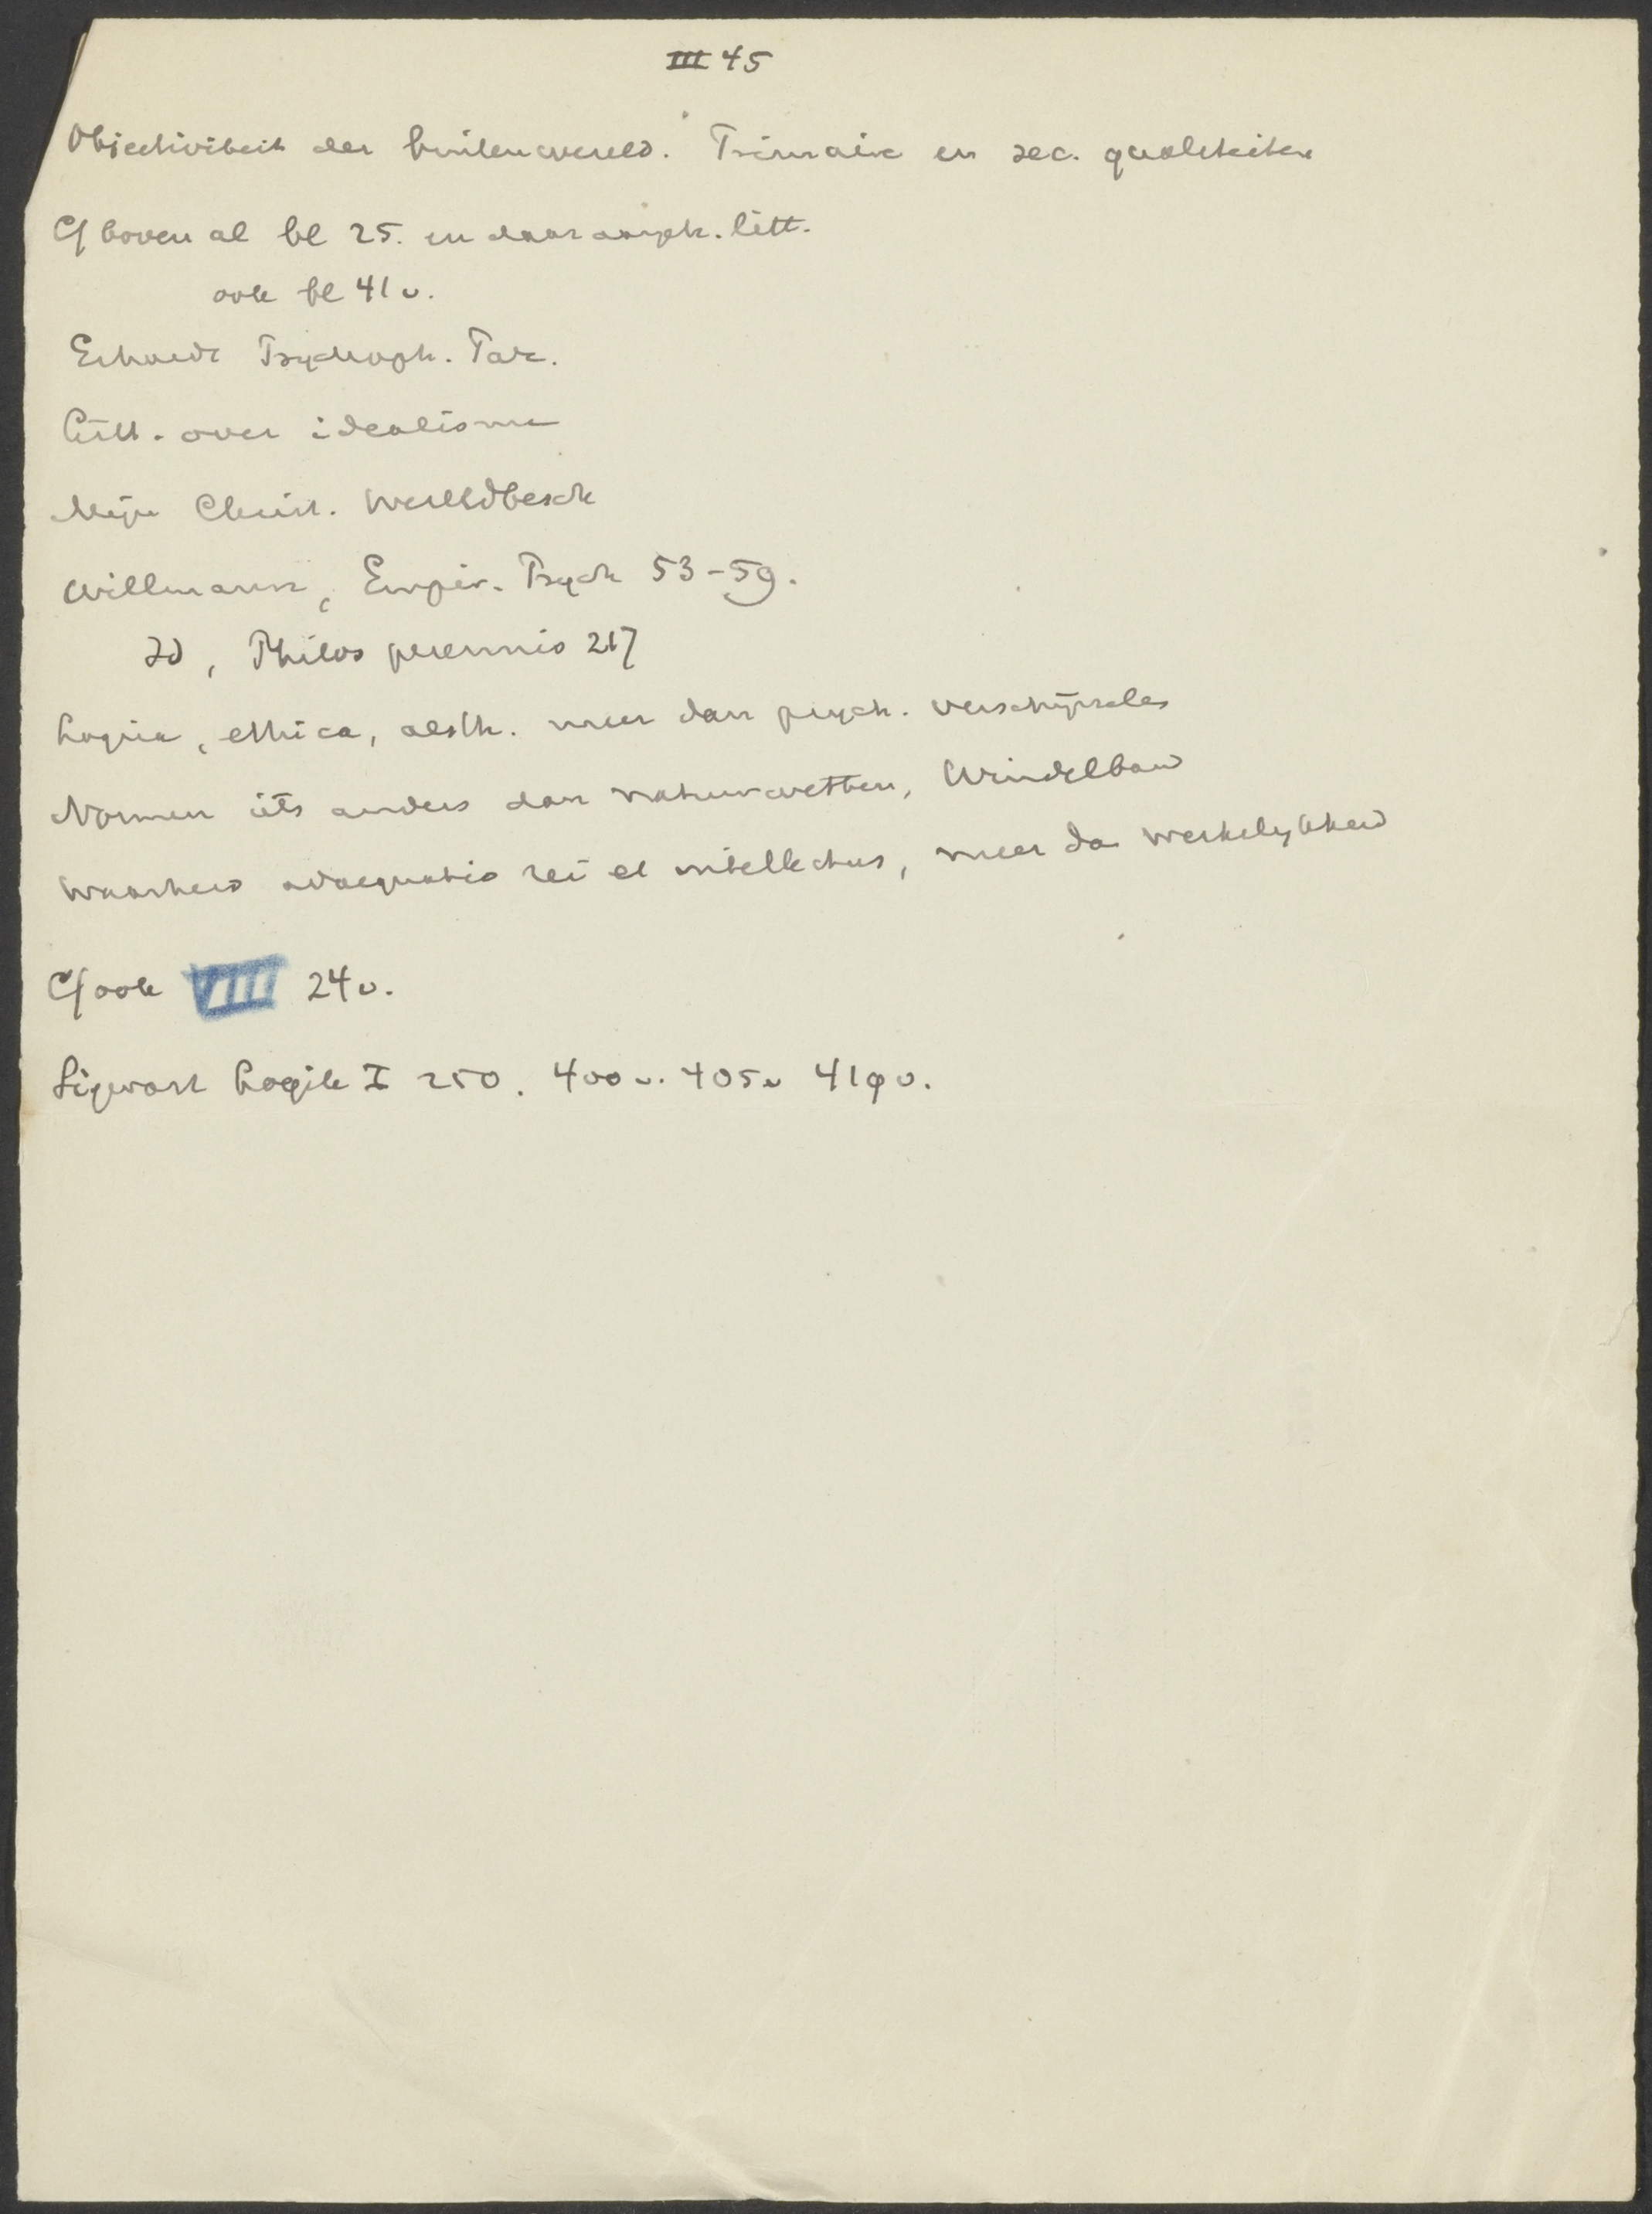 III 45
Objectiviteit der buitenwereld. Primaire en sec. qualiteiten
Cf boven al bl 25. en daar aangeh. litt.
ook bl 41 v.
Erhardt Psychoph. Par.
Litt. over idealisme
Mijn Christ. Wereldbesch
Willmann, Empir. Psych 53-59.
Id, Philos perennis 217
Logica, ethica, aesth. meer dan psych. verschijnselen
Normen iets anders dan natuurwetten, Windelband
Waarheid adaequatio rei et intellectus, meer dan werkelijkheid
Cf ook VIII 24 v.
Sigwart Logik I 250. 400 v. 405 v 419 v.